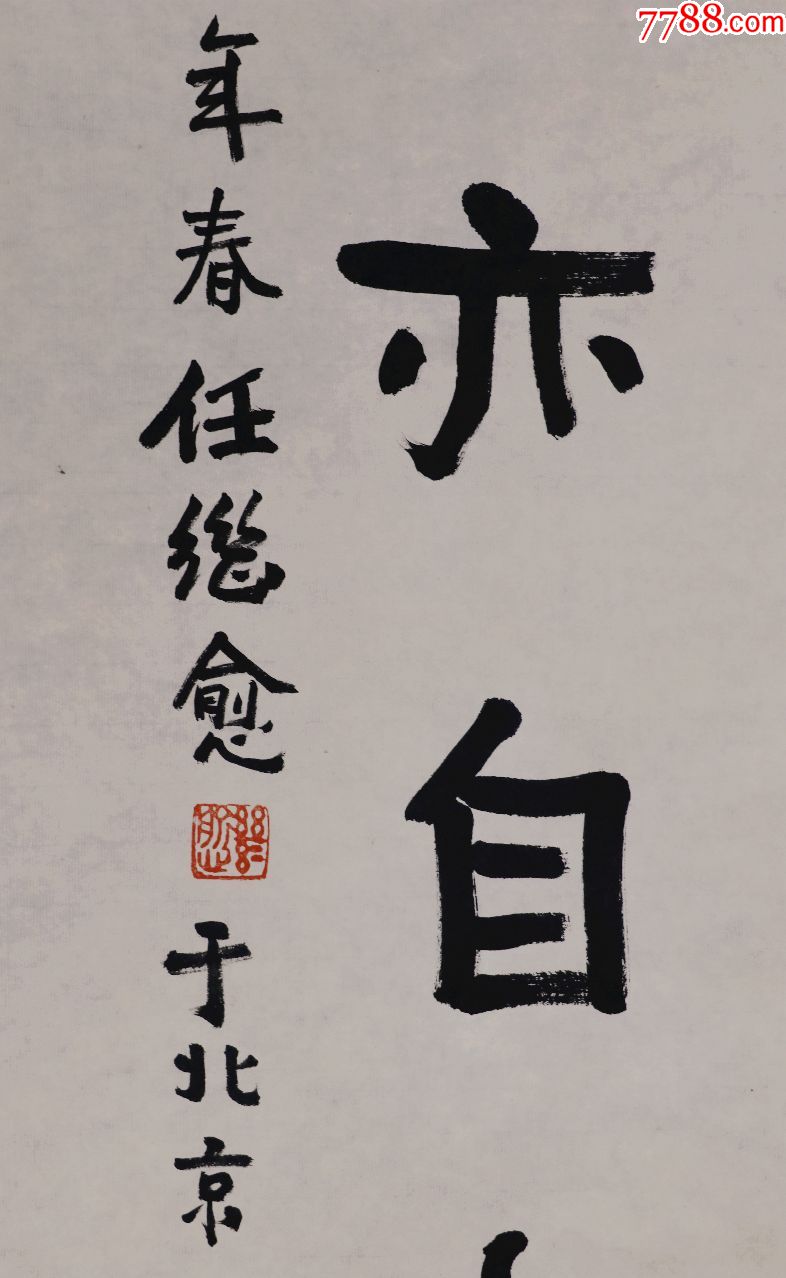 7788.com
亦自
年春任继愈
继愈
于北京